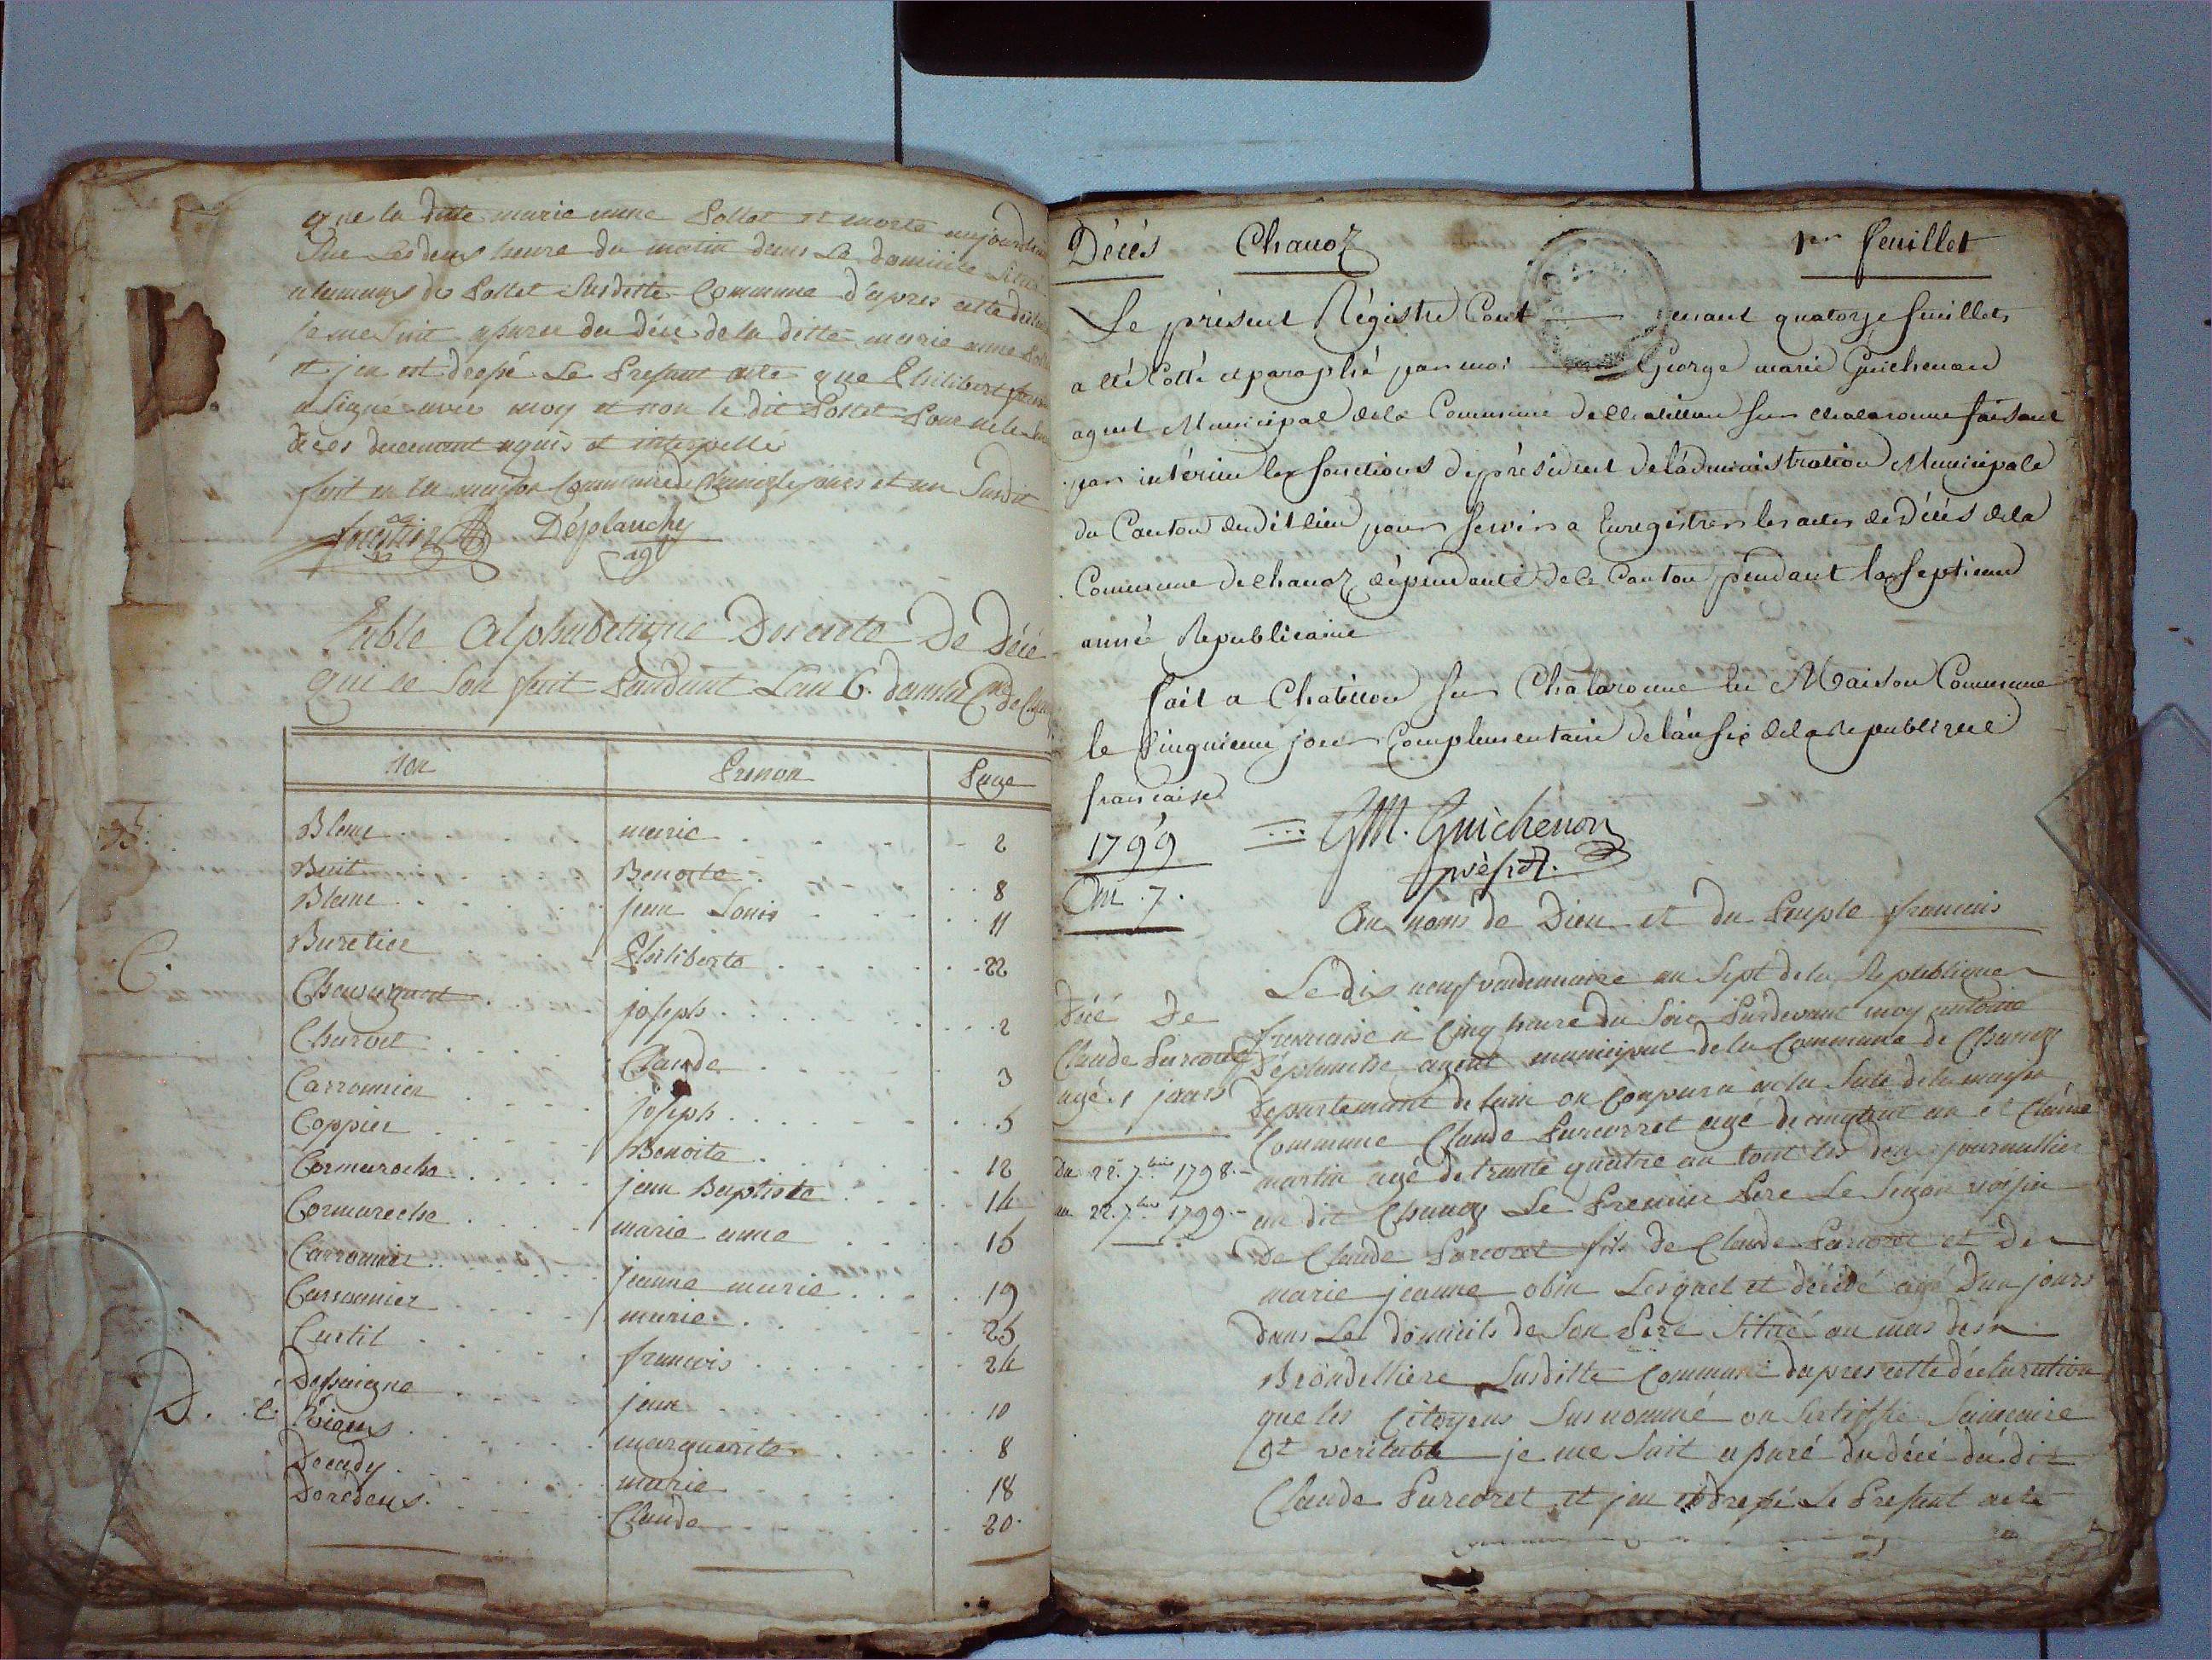 que la ditte marie anne Pollet et morte aujourd'hui
Sue Les deux heure du matin dans Le domicile Situé
du Pollet Susditte Commune d'apres cette
je me Suit aparu du décé de la ditte marie anne
et jen est dressé Le Present acte que Philibert
a Signé avec moy et non le dit Pollet Pour ne le
de ce duement aquis et interpellé
fait en la maison Commune de Chanoz le jours et an Susdit
Déplanche
agt
Table Alphabetique De Décé
qui ce Son fait Pandant Lan 6. dans la Cne de
Non Prenon Page
B. Blanc marie 2
Buit Benoite 8
Blanc jean Louis 11
Buretier Philiberte 22
C. joseph 2
Charvet Claude 3
Carronnier joseph 5
Coppier Benoite 12
Cormareche jean Baptiste 14
Cormareche marie anne 15
Carronnier jeanne marie 19
Carronnier marie 25
Curtil francois 24
D. jean 10
marguerite 8
marie 18
Claude 20
Décés Chanoz 1er feuillet
Le présent Régistre Cont enant quatorze feuillets
a été Cotté et paraphé par moi George marie Guichenon
agent Municipal dela Commune de Chatillon sur chalaronne faisant
par intérim les fonctions de président de l'administration Municipale
du Canton dudit lieu pour servir a Enregistrer les actes de Décés dela
Commune de chanoz dépendante de ce Canton pendant la septieme
année Republicaine
fait a Chatillon sur Chalaronne en Maison Commune
le Cinquieme jour Complementaire de l'an six dela Republique
francaise
1799 GM. Guichenon
présdt.
An. 7.
Au nom de Dieu et du Peuple francais
Le dix neuf vandemiaire an Sept de la Republique
Décé De francaise a Cinq heure du Soir Pardevant moy antoine
Claude Purcoret Déplanche agent municipal de la Commune de Chanoz
agé 1 jours Departement de lain on Conparu en la Sale de la maison
Commune Claude Purcorret age de cinquante an et Claude
Du 22. 7bre 1798. martin agé de trante quatre an tout les deux journallier
au 22. 7bre 1799. au dit Chanoz Le Premier Pere Le Segon voisin
De Claude Purcoret fils de Claude Purcoret et de
marie jeanne obin Lesquel et décédé agé D'un jours
dans Le domicils de Son Pere Situé au mas des
Brondelliere Susditte Commune dapres cette déclaration
que les Citoyens Susnommé on Sertiffié Sainceaire
et veritable je me Suit aparé du décé du dit
Claude Purcoret et jen est dressé Le Present acte